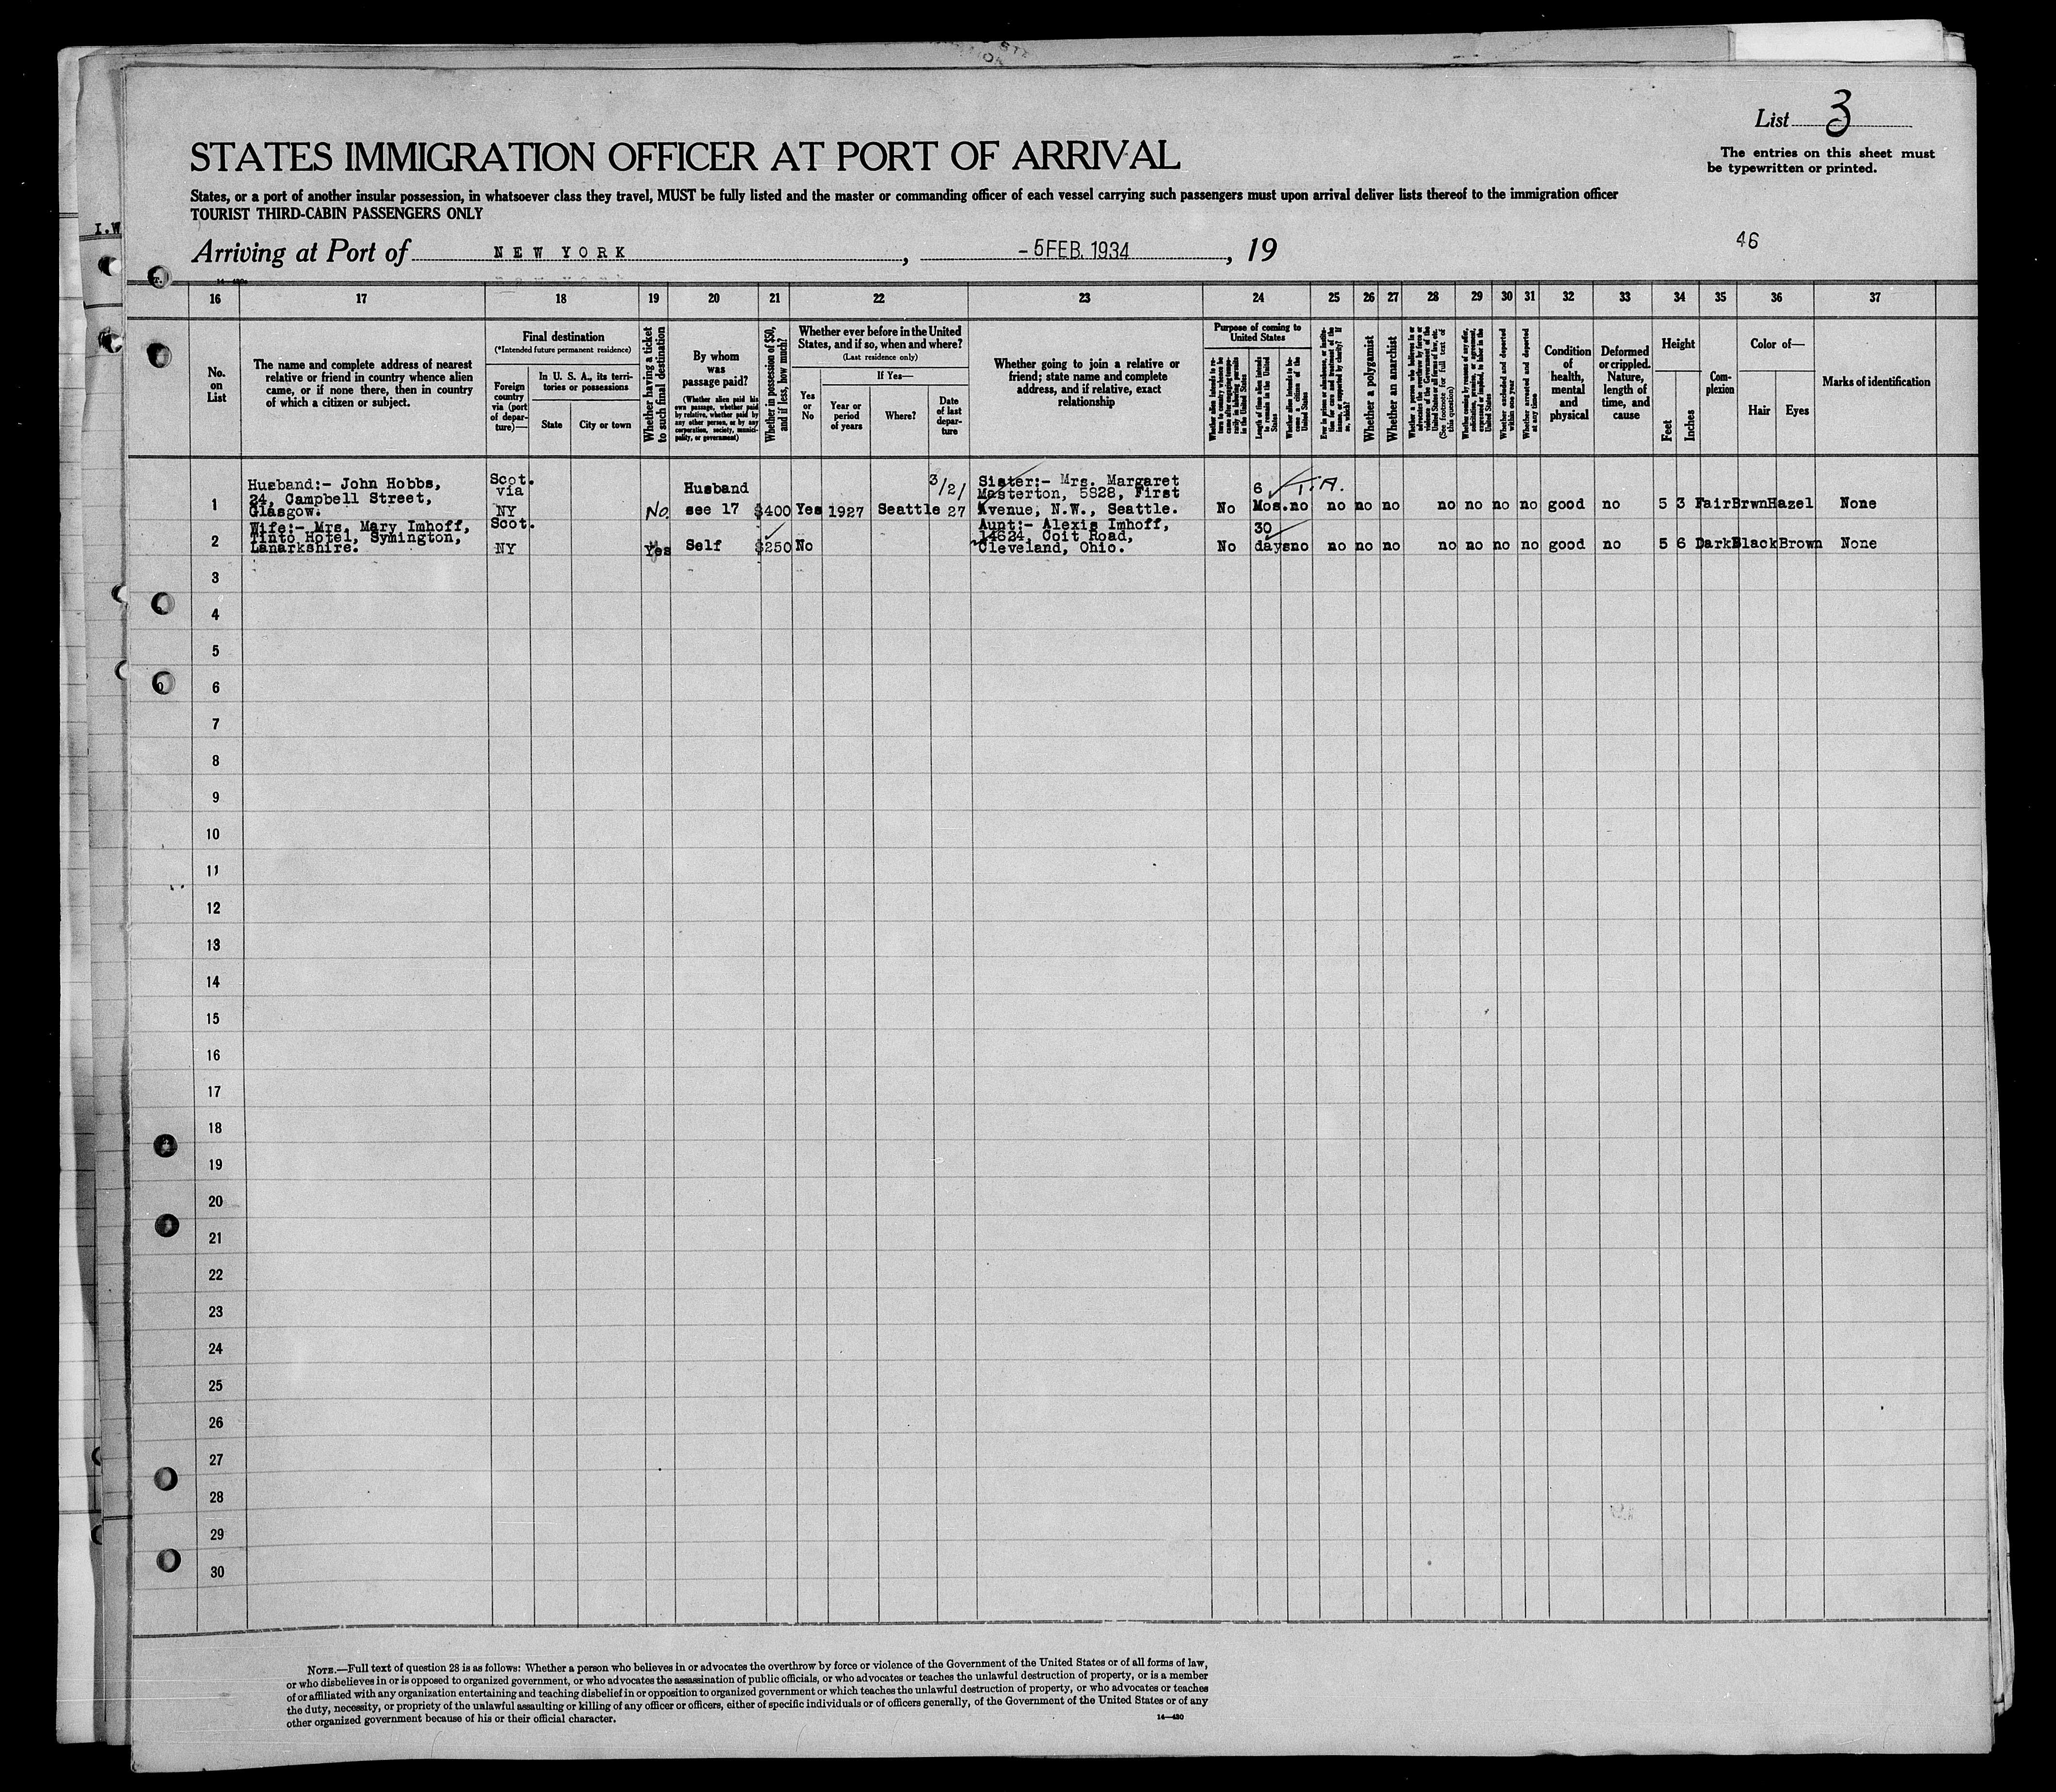 List 3
The entries on this sheet must
be typewritten or printed.
STATES IMMIGRATION OFFICER AT PORT OF ARRIVAL
States, or a port of another insular possession, in whatsoever class they travel, MUST be fully listed and the master or commanding officer of each vessel carrying such passengers must upon arrival deliver lists thereof to the immigration officer
TOURIST THIRD-CABIN PASSENGERS ONLY
I.W
Arriving at Port of NEW YORK, -5 FEB. 1934, 19
46
16 17 18 19 20 21 22 23 24 25 26 27 28 29 30 31 32 33 34 35 36 37
No.
on
List
The name and complete address of nearest
relative or friend in country whence alien
came, or if none there, then in country
of which a citizen or subject.
Final destination
(*Intended future permanent residence)
Foreign
country
via (port
of depar-
ture)—
In U. S. A., its terri-
tories or possessions
State
City or town
Whether having a ticket
to such final destination
By whom
was
passage paid?
(Whether alien paid his
own passage, whether paid
by relative, whether paid by
any other person, or by any
corporation, society, munici-
pality, or government)
Whether in possession of $50,
and if less, how much?
Whether ever before in the United
States, and if so, when and where?
(Last residence only)
Yes
or
No
If Yes—
Year or
period
of years
Where?
Date
of last
depar-
ture
Whether going to join a relative or
friend; state name and complete
address, and if relative, exact
relationship
Purpose of coming to
United States
Whether alien intends to re-
turn to country whence he
came after engaging tempo-
rarily in laboring pursuits
in the United States
Length of time alien intends
to remain in the United
States
Whether alien intends to be-
come a citizen of the
United States
Ever in prison or almshouse, or institu-
tion for care and treatment of the
insane, or supported by charity? If
so, which?
Whether a polygamist
Whether an anarchist
Whether a person who believes in or
advocates the overthrow by force or
violence of the Government of the
United States or all forms of law, etc.
(See footnote for full text of
this question)
Whether coming by reason of any offer,
solicitation, promise, or agreement,
expressed or implied, to labor in the
United States
Whether excluded and deported
within one year
Whether arrested and deported
at any time
Condition
of
health,
mental
and
physical
Deformed
or crippled.
Nature,
length of
time, and
cause
Height
Feet
Inches
Com-
plexion
Color of—
Hair
Eyes
Marks of identification
1
Husband:- John Hobbs,
24, Campbell Street,
Glasgow.
Scot.
via
NY
No.
Husband
see 17
$400
Yes
1927
Seattle
3/2/
27
Sister:- Mrs. Margaret
Masterton, 5828, First
Avenue, N.W., Seattle.
No
6
Mos.
T.A.
no no no no no no no no good no 5 3 Fair Brwn Hazel None
2
Wife:- Mrs. Mary Imhoff,
Tinto Hotel, Symington,
Lanarkshire.
Scot.
NY
Yes
Self
$250
No
Aunt:- Alexis Imhoff,
14624, Coit Road,
Cleveland, Ohio.
No
30
days
no no no no no no no no good no 5 6 Dark Black Brown None
3
4
5
6
7
8
9
10
11
12
13
14
15
16
17
18
19
20
21
22
23
24
25
26
27
28
29
30
NOTE.—Full text of question 28 is as follows: Whether a person who believes in or advocates the overthrow by force or violence of the Government of the United States or of all forms of law,
or who disbelieves in or is opposed to organized government, or who advocates the assassination of public officials, or who advocates or teaches the unlawful destruction of property, or is a member
of or affiliated with any organization entertaining and teaching disbelief in or opposition to organized government or which teaches the unlawful destruction of property, or who advocates or teaches
the duty, necessity, or propriety of the unlawful assaulting or killing of any officer or officers, either of specific individuals or of officers generally, of the Government of the United States or of any
other organized government because of his or their official character.
14—430